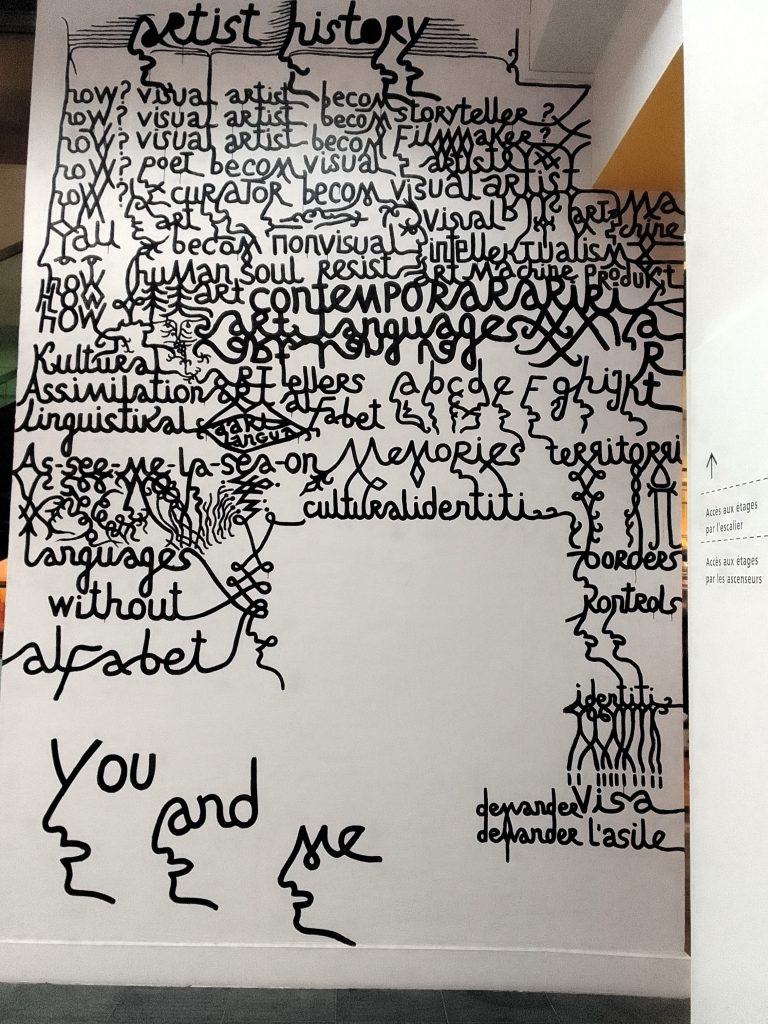 artist history
how? visual artist becom storyteller?
how? visual artist becom Filmmaker?
how? visual artist becom
how? poet becom visual artist
how? curator becom visual artist
how art visual art Machine
becom nonvisual intellektualism
human soul resist art Machine Produkt
how art contemporararikiki
how art languages
how
Kultural
Assimilation art tellers
linguistikal alfabet a b c d e F g h i j K t
art Langua
As-see-me-la-sea-on Memories territorri
culturalidentiti
languages borders
without Kontrols
alfabet
identiti?
You
and
Me
demander Visa
demander l'asile
Accès aux étages
par l'escalier
Accès aux étages
par les ascenseurs